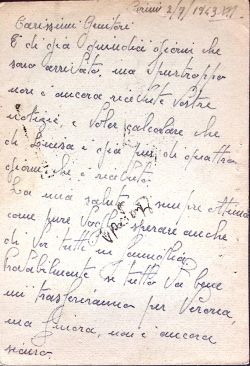 Rimini 2/9/1943 XXI
Carissimi Genitori
È di già quindici giorni che
sono arrivato, ma purtroppo
non è ancora ricevute vostre
notizie e voler calcolare che
di Luisa è già più di quattro
giorni che è ricevuto.
La mia salute è sempre ottima
come pure voglio sperare anche
di Voi tutti in famiglia.
Probabilmente se tutto va bene
mi trasferiranno per Verona,
ma finora, non è ancora
sicuro